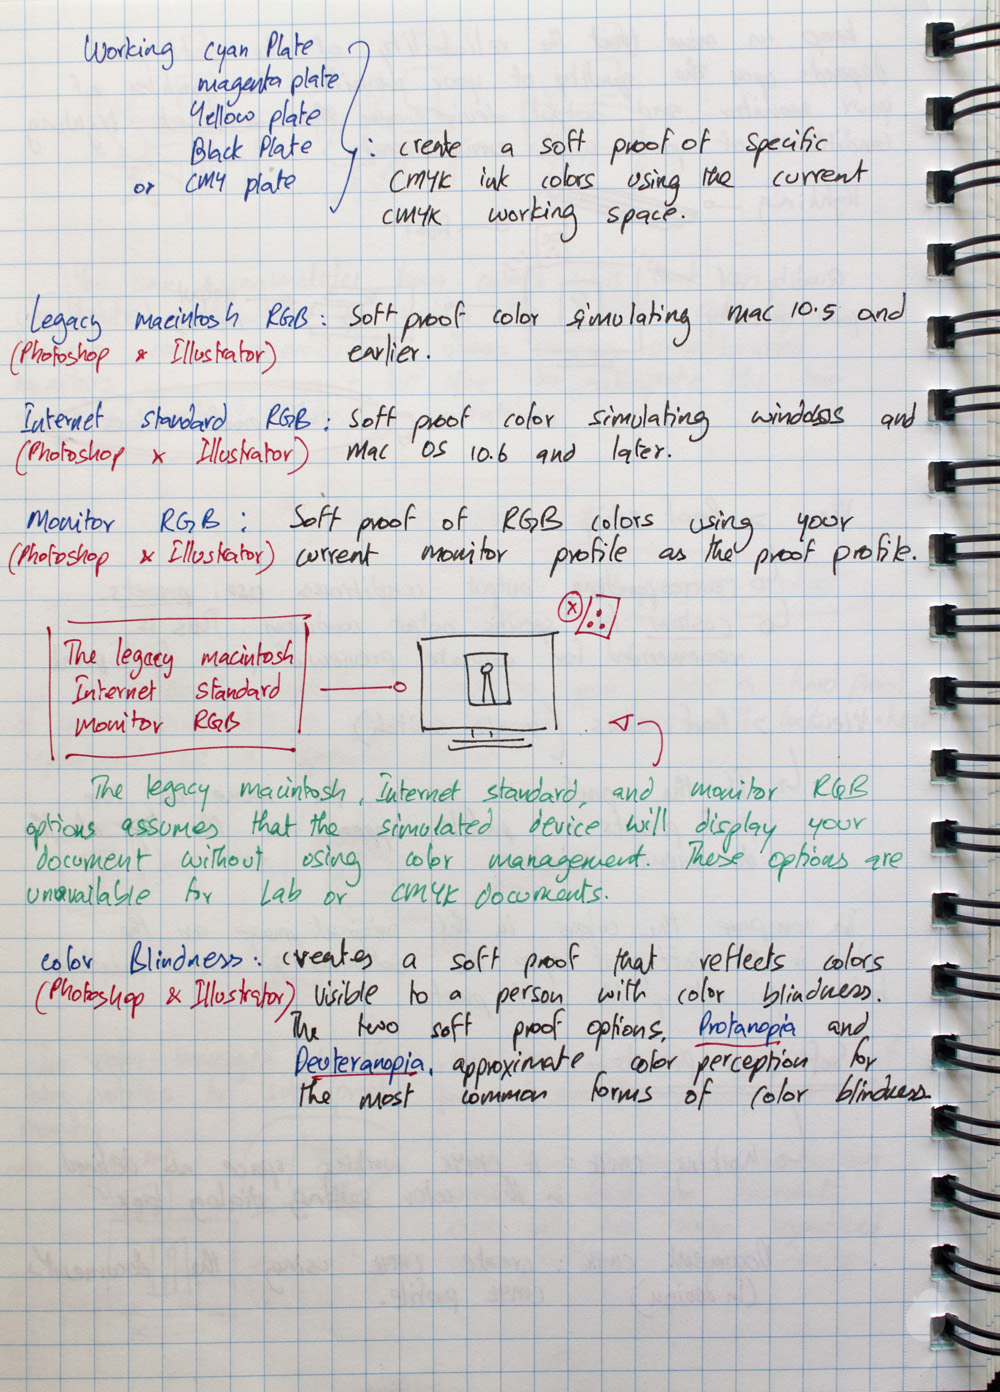 Working Cyan Plate
magenta plate
Yellow plate
Black Plate
or CMY plate
: create a soft proof of specific
CMYK ink colors using the current
CMYK working space.
Legacy macintosh RGB : Soft proof color simulating mac 10.5 and
(Photoshop & Illustrator) earlier.
Internet standard RGB : Soft proof color simulating windows and
(Photoshop & Illustrator) Mac OS 10.6 and later.
Monitor RGB : Soft proof of RGB colors using your
(Photoshop & Illustrator) current monitor profile as the proof profile.
The legacy macintosh
Internet standard
monitor RGB
The legacy macintosh, Internet standard, and monitor RGB
options assumes that the simulated device will display your
document without using color management. These options are
unavailable for Lab or CMYK documents.
Color Blindness : creates a soft proof that reflects colors
(Photoshop & Illustrator) visible to a person with color blindness.
The two soft proof options, Protanopia and
Deuteranopia, approximate color perception for
the most common forms of color blindness.